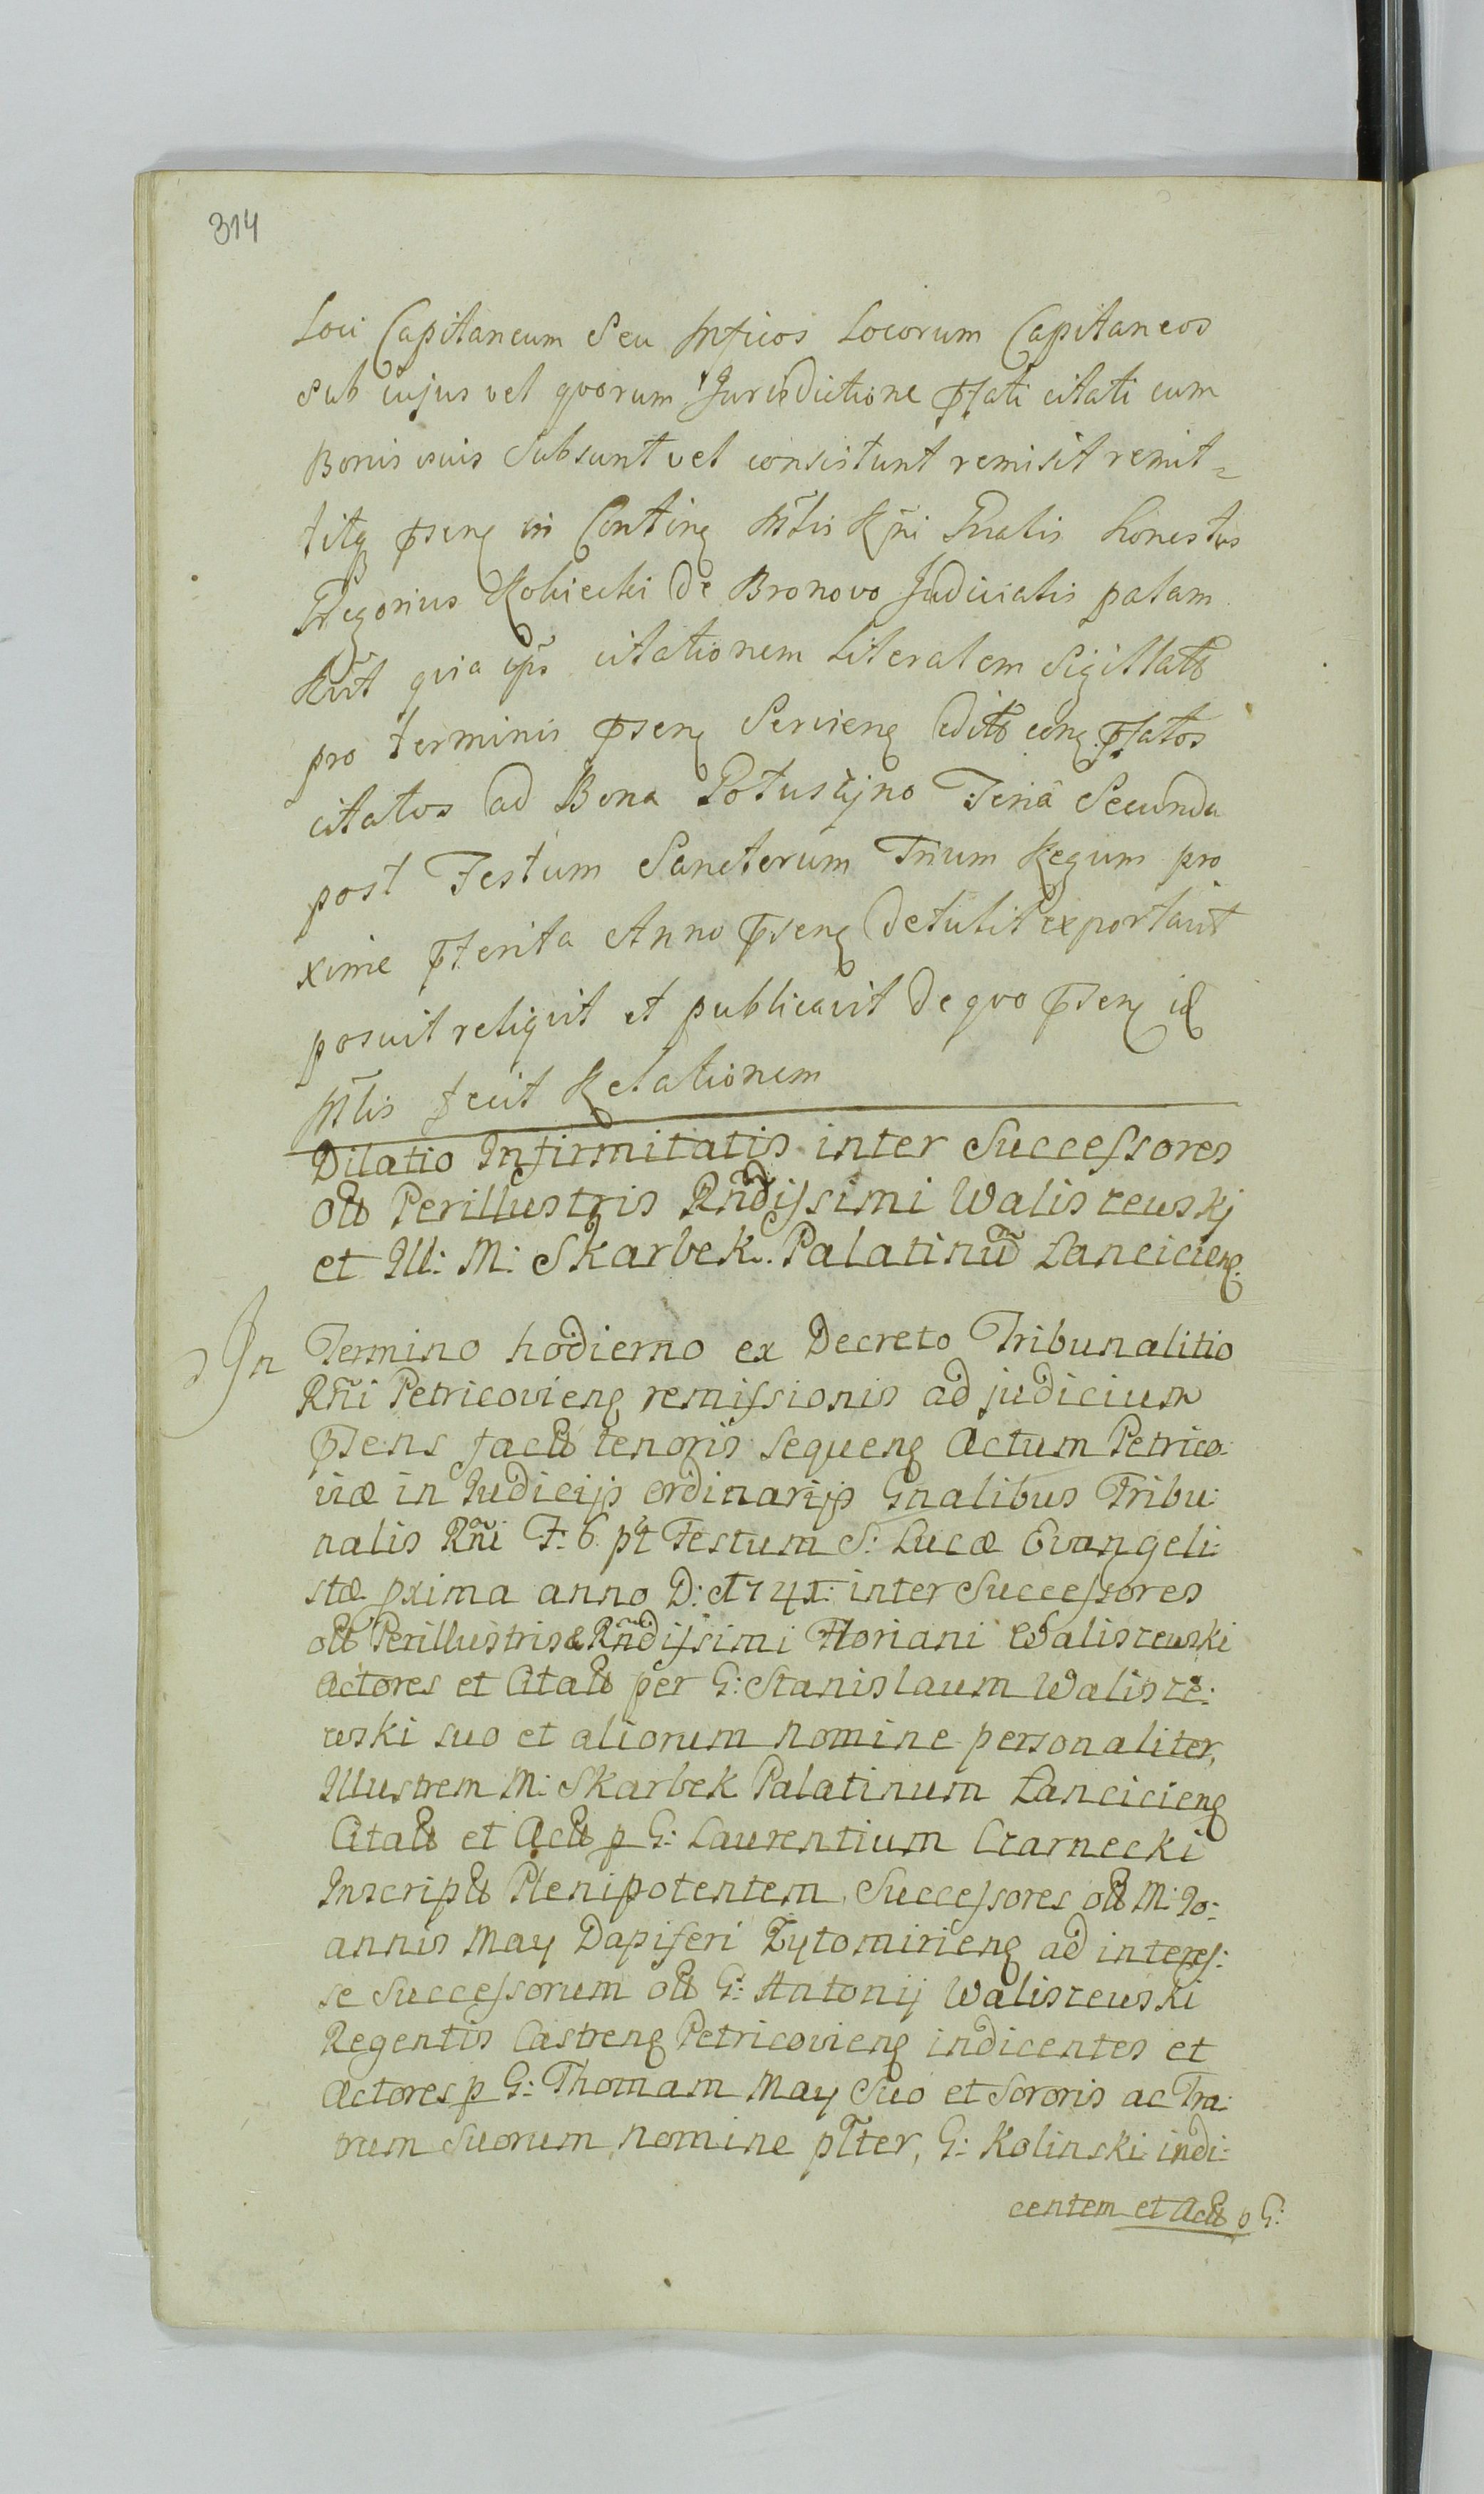 314
Loci Capitaneum Seu Inficos Locorum Capitaneos
Sub cujus vel qvorum Jurisdictione pffati citati cum
Bonis suis Subsunt vel consistunt remisit remit=
titq pseng in Conting Mtlis Rñi Gnalis honestus
Gregorius Kobiecki De Bronovo Judicialis palam
qvia ips citationem Literalem Sigillatã
pro terminis pseng Servieng edità pffatos
citatos ad Bona Potusẏno Feriâ Secunda
post Festum Sanctorum Trium Regum pro
xime pterita Anno pseng Detulit exportavit
posuit reliqvit et publicavit De qvo pseng id
Mtlis fecit Relationem
Dilatio Infirmitatis inter Successores
olĩ Perillustris Rñdissimi Waliszewskj
et Ill: M: Skarbek Palatinũ Lancicieng
In Termino hodierno ex Decreto Tribunalitio
Rñi Petricovieng remissionis ad judicium
psens factũ tenoris sequeng Actum Petrico:
viæ in Judicijs ordinarijs Gnalibus Tribu:
nalis Rñi F: 6. pt Festum S: Lucæ Evangeli:
stæ pxima anno D: 1741: inter Successores
olĩ Perillustris & Rñdissimi Floriani Waliszewski
Actores et Citatũ per G: Stanislaum Walisze:
wski suo et aliorum nomine personaliter,
Illustrem M: Skarbek Palatinum Lancicieng
Citatũ et Actũ p G: Laurentium Czarnecki
Inscriptũ Plenipotentem, Successores olĩ M: Jo:
annis May Dapiferi Zytomirieng ad interes:
se Successorum olĩ G: Antonij Waliszewski
Regentis Castreng Petricovieng indicentes et
Actores p G: Thomam May Suo et Sororis ac Fra:
trum Suorum nomine plter, G: Kolinski indi:
centem et Actũ p G: